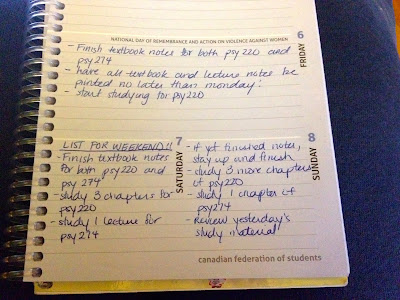 NATIONAL DAY OF REMEMBRANCE AND ACTION ON VIOLENCE AGAINST WOMEN
6
FRIDAY
- Finish textbook notes for both psy220 and
psy274
- have all textbook and lecture notes be
printed no later than monday!
- start studying for psy220
7
SATURDAY
LIST FOR WEEKEND!!
- Finish textbook notes
for both psy220 and
psy 274
- study 3 chapters for
psy220
- study 1 lecture for
psy274
8
SUNDAY
- if not finished notes,
stay up and finish
- study 3 more chapters
of psy220
- study 1 chapter of
psy274
- Review yesterday's
study material
canadian federation of students